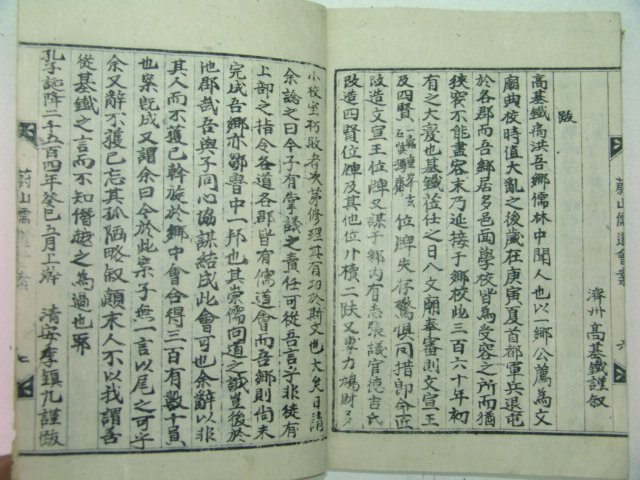 濟州高基鐵謹叙
跋
高基鐵馮洪吾鄕儒林中聞人也以一鄕公薦爲文
廟典校時値大亂之後歲在庚寅夏首都軍兵退屯
於各郡而吾鄕居多邑面學校皆爲受容之所而猶
狹窄不能盡容末乃延接于鄕校此三百六十年初
有之大變也基鐵莅任之日入文廟奉審則文宣王
及四賢位牌失存驚惧同措卽命匠
改造文宣王位牌又謀于鄕內有志張議官德吉氏
改造四賢位牌及其他位卜櫝二趺又專力鳩財
小校室朽敗者次第修理其有功於斯文也大矣日請
余諗之曰今子有掌議之責任可從吾言乎非徒有
上部之指令各道各郡皆有儒道會而吾鄕則尙未
完成吾鄕亦鄒魯中一邦也其崇儒向道之誠豈後於
他郡哉吾與子同心協謀結成此會可也余辭以非
其人而不獲已幹旋於鄕中會合得三百有數十員
也案旣成又謂余曰今於此案子無一言以尾之可乎
余又辭不獲已忘其孤陋略叙顚末人不以我謂善
從基鐵之言而不知僭越之爲過也耶
孔子誕降二千五百四年癸巳五月上澣 淸安李鎭九謹跋
蔚山儒道會案 六
蔚山儒道會案 七